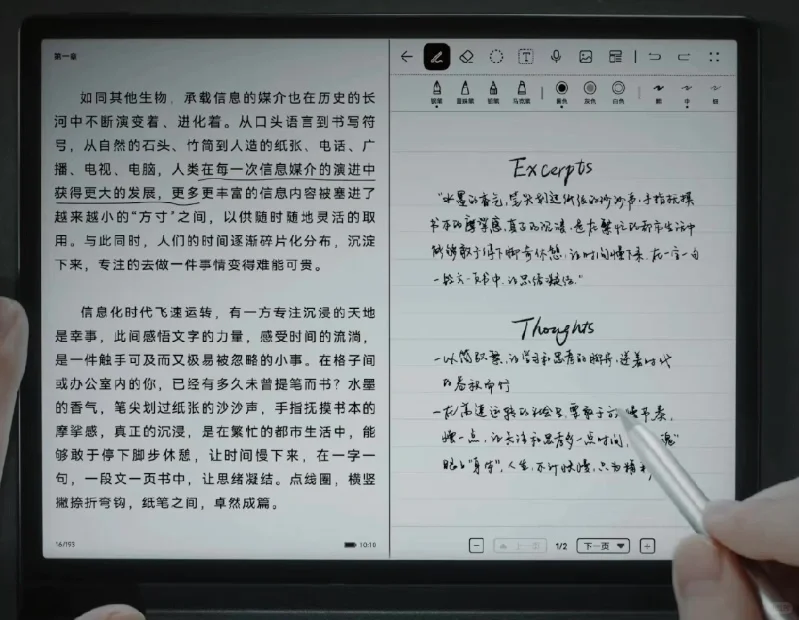 第一章
如同其他生物，承载信息的媒介也在历史的长
河中不断演变着、进化着。从口头语言到书写符
号，从自然的石头、竹简到人造的纸张、电话、广
播、电视、电脑，人类在每一次信息媒介的演进中
获得更大的发展，更多更丰富的信息内容被塞进了
越来越小的“方寸”之间，以供随时随地灵活的取
用。与此同时，人们的时间逐渐碎片化分布，沉淀
下来，专注的去做一件事情变得难能可贵。
信息化时代飞速运转，有一方专注沉浸的天地
是幸事，此间感悟文字的力量，感受时间的流淌，
是一件触手可及而又极易被忽略的小事。在格子间
或办公室内的你，已经有多久未曾提笔而书？水墨
的香气，笔尖划过纸张的沙沙声，手指抚摸书本的
摩挲感，真正的沉浸，是在繁忙的都市生活中，能
够敢于停下脚步休憩，让时间慢下来，在一字一
句，一段文一页书中，让思绪凝结。点线圈，横竖
撇捺折弯钩，纸笔之间，卓然成篇。
16/193
10:10
钢笔 铅笔 马克笔 黑色 灰色 白色 粗 中 细
Excerpts
“水墨的香气，笔尖划过纸张的沙沙声，手指抚摸
书本的摩挲感，真正的沉浸，是在繁忙的都市生活中
能够敢于停下脚步休憩，让时间慢下来，在一字一句
一段文一页书中，让思绪凝结。”
Thoughts
的
慢一点，让关注和思考多一点时间，
眼，“身体”，人生，不计快慢，只为精彩
上一页 1/2 下一页